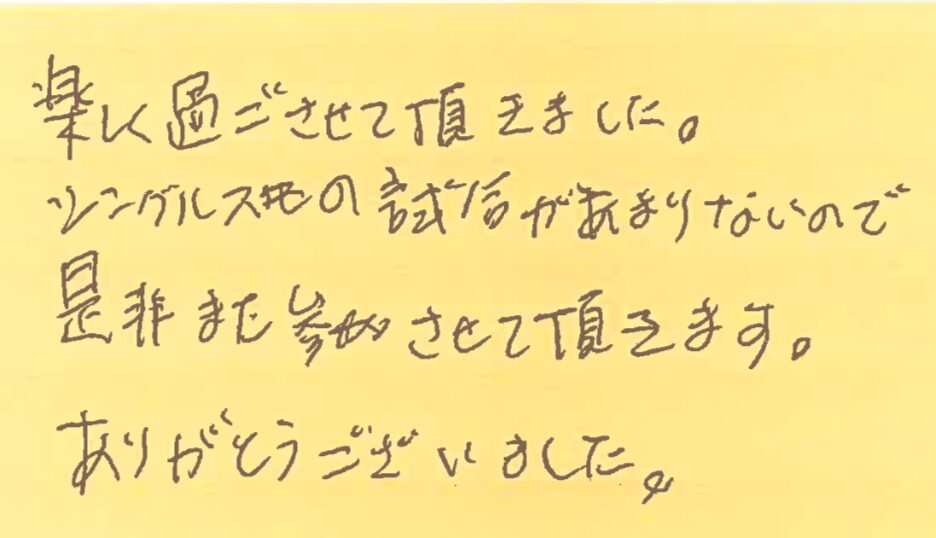 楽しく過ごさせて頂きました。
シングルスの試合があまりないので
是非また参加させて頂きます。
ありがとうございました。